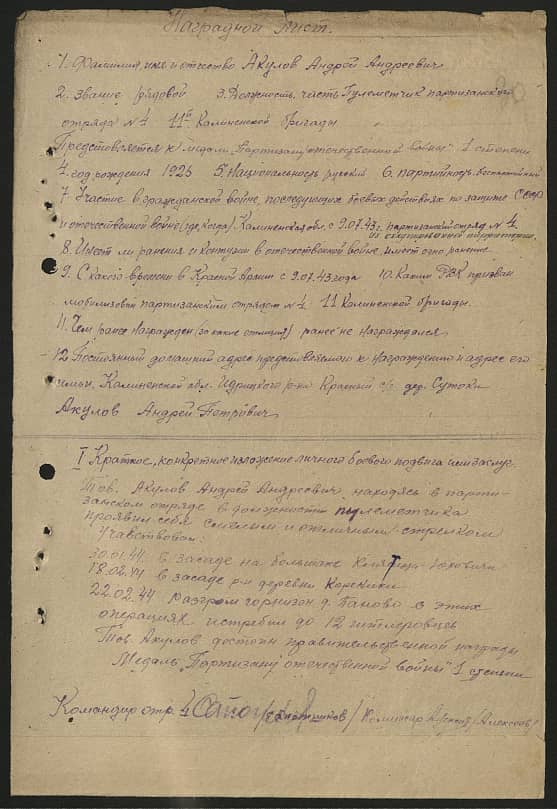 Наградной лист.
1. Фамилия имя и отчество Акулов Андрей Андреевич
2. Звание рядовой 3. Должность, часть Пулеметчик партизанского
отряда №4 11й Калиненской бригады
Представляется к медали „Партизану отечественной войны" 1 степени
4. год рождения 1925 5. Национальность русский 6. партийность беспартийный
7 Участие в гражданской войне, последующих боевых действиях по защите СССР
и отечественной войне (где, когда). Калиненская обл. с 9.07.43 г. партизанский отряд №4
на оккупированной территории.
8. Имеет ли ранения и контузии в отечественной войне. имеет одно ранение
9. С какого времени в Красной Армии с 9.07.43 года 10. Каким РВК призван
мобилизован партизанским отрядом №4 11 Калиненской бригады.
11. Чем ранее награжден (за какие отличия) ранее не награждался
12 Постоянный домашний адрес представляемого к награждению и адрес его
семьи. Калиненская обл. Идрицкого р-на Красный с/с дер. Сутоки
Акулов Андрей Петрович
I Краткое, конкретное изложение личного боевого подвига или заслуг.
Тов. Акулов Андрей Андреевич находясь в парти-
занском отряде в должности пулеметчика
проявил себя смелым и отличным стрелком
Учавствовал:
30.01.44 в засаде на большаке
18.02.44 в засаде р-н деревни
22.02.44 разгром горнизон д. Баново в этих
операциях истребил до 12 гитлеровцев
Тов Акулов достоин правительственной награды
Медаль „Партизану отечественной войны" 1 степени
Командир отр. 4 /Сапожников/ Комиссар /Алексеев/